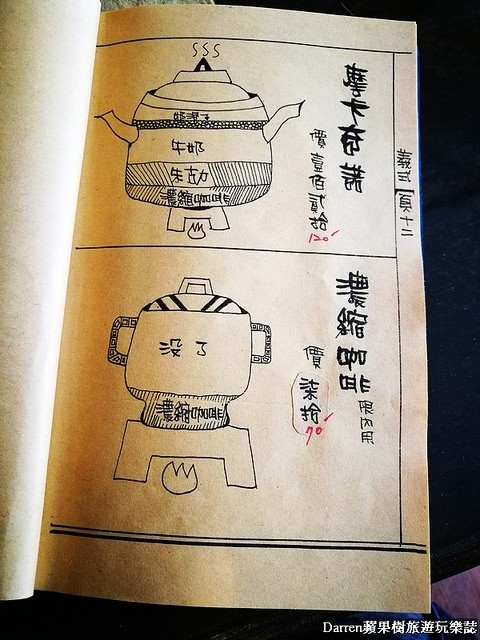 義式 頁十二
摩卡奇諾
價 壹佰貳拾
120
奶泡子
牛奶
朱古力
濃縮咖啡
濃縮咖啡
限內用
價 柒拾
70
没了
濃縮咖啡
Darren蘋果樹旅遊玩樂誌